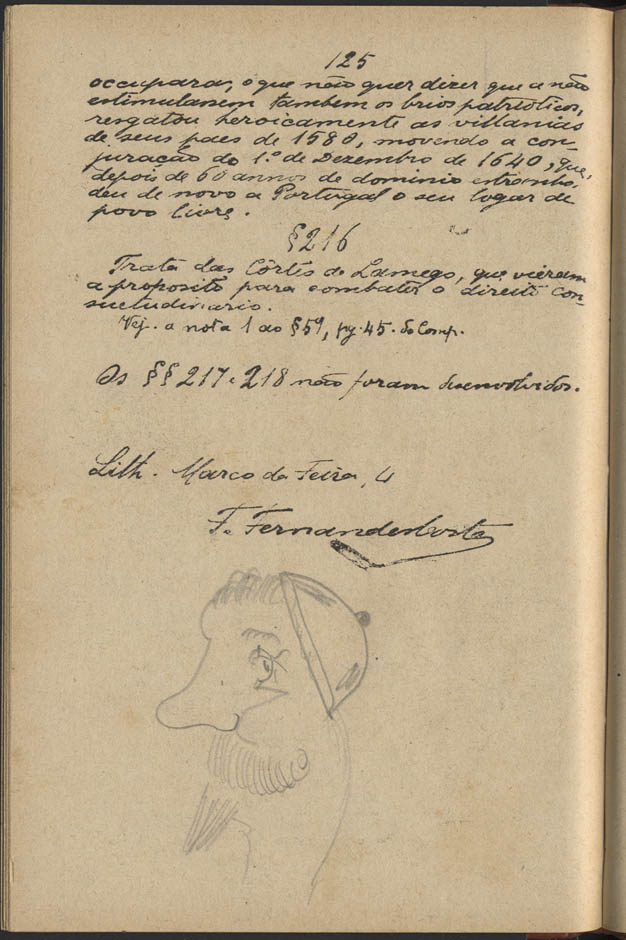 125
occupara, o que não quer dizer que a não
estimulassem tambem os brios patrioticos,
resgatou heroicamente as villanias
de seus paes de 1580, movendo a con-
juração do 1.º de Dezembro de 1640, que,
depois de 60 annos de dominio estranho,
deu de novo a Portugal o seu logar de
povo livre.
§216
Trata das Côrtes de Lamego, que vieram
a proposito para combater o direito con-
suetudinario.
Vej. a nota 1 ao §59, pg. 45. do Comp.
Os §§ 217 e 218 não foram desenvolvidos.
Lith. Marco da Feira, 4
F. Fernandes Costa